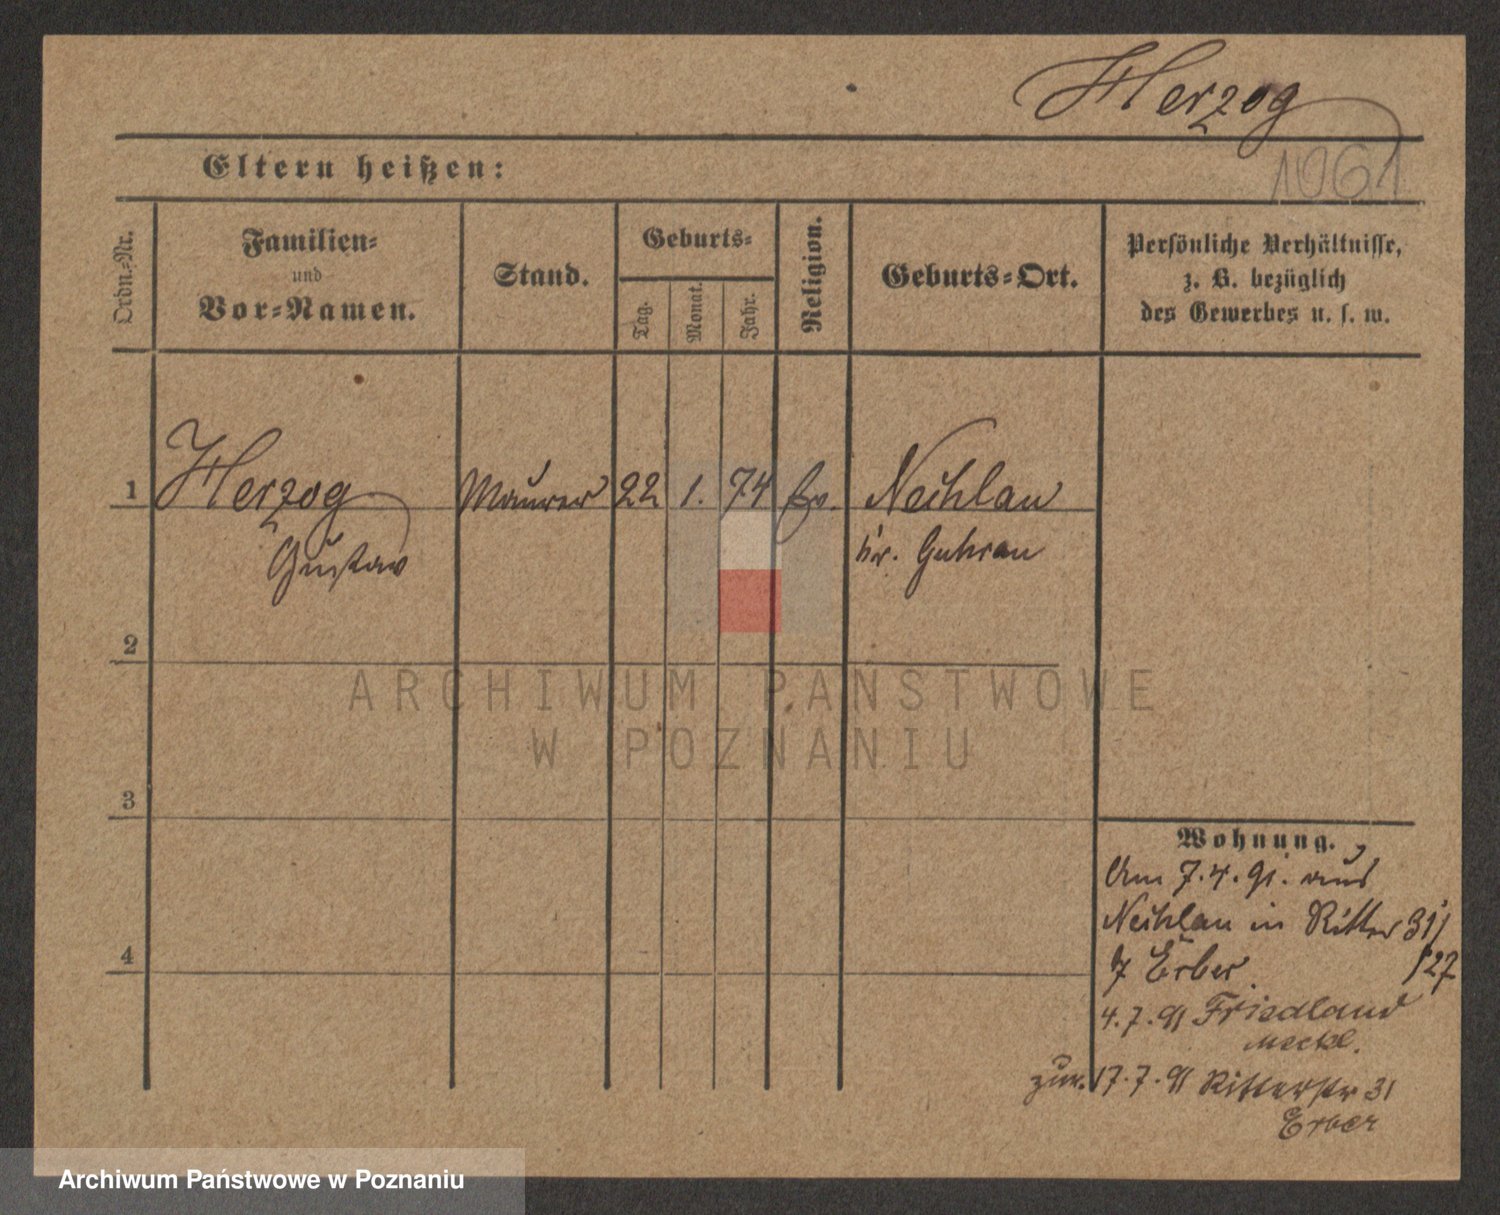 Herzog
1061
Eltern heißen:
Ordn.-Nr.
Familien-
und
Vor-Namen.
Stand.
Geburts-
Tag.
Monat.
Jahr.
Religion.
Geburts-Ort.
Persönliche Verhältnisse,
z. B. bezüglich
des Gewerbes u. s. w.
1 Herzog Maurer 22 1. 74 Ev. Nechlau
Gustav kr. Guhrau
2
ARCHIWUM PAŃSTWOWE
W POZNANIU
3
Wohnung.
Am 7.4.91. aus
Nechlau in Ritter 31/
4
b/ Erber /27
4.7.91 Friedland
Meckl.
zur. 17.7.91 Ritterstr 31
Erber
Archiwum Państwowe w Poznaniu